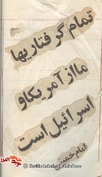 تمام گرفتاریها
ما از آمریکا و
اسرائیل است
امام خمینی